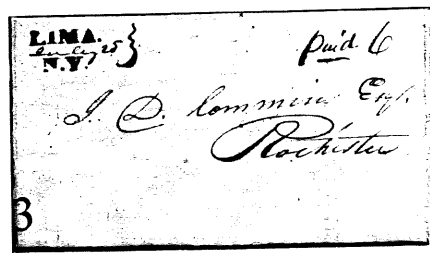 LIMA.
25
N.Y.
Paid 6
J. D. Commins Esqr.
Rochester
3